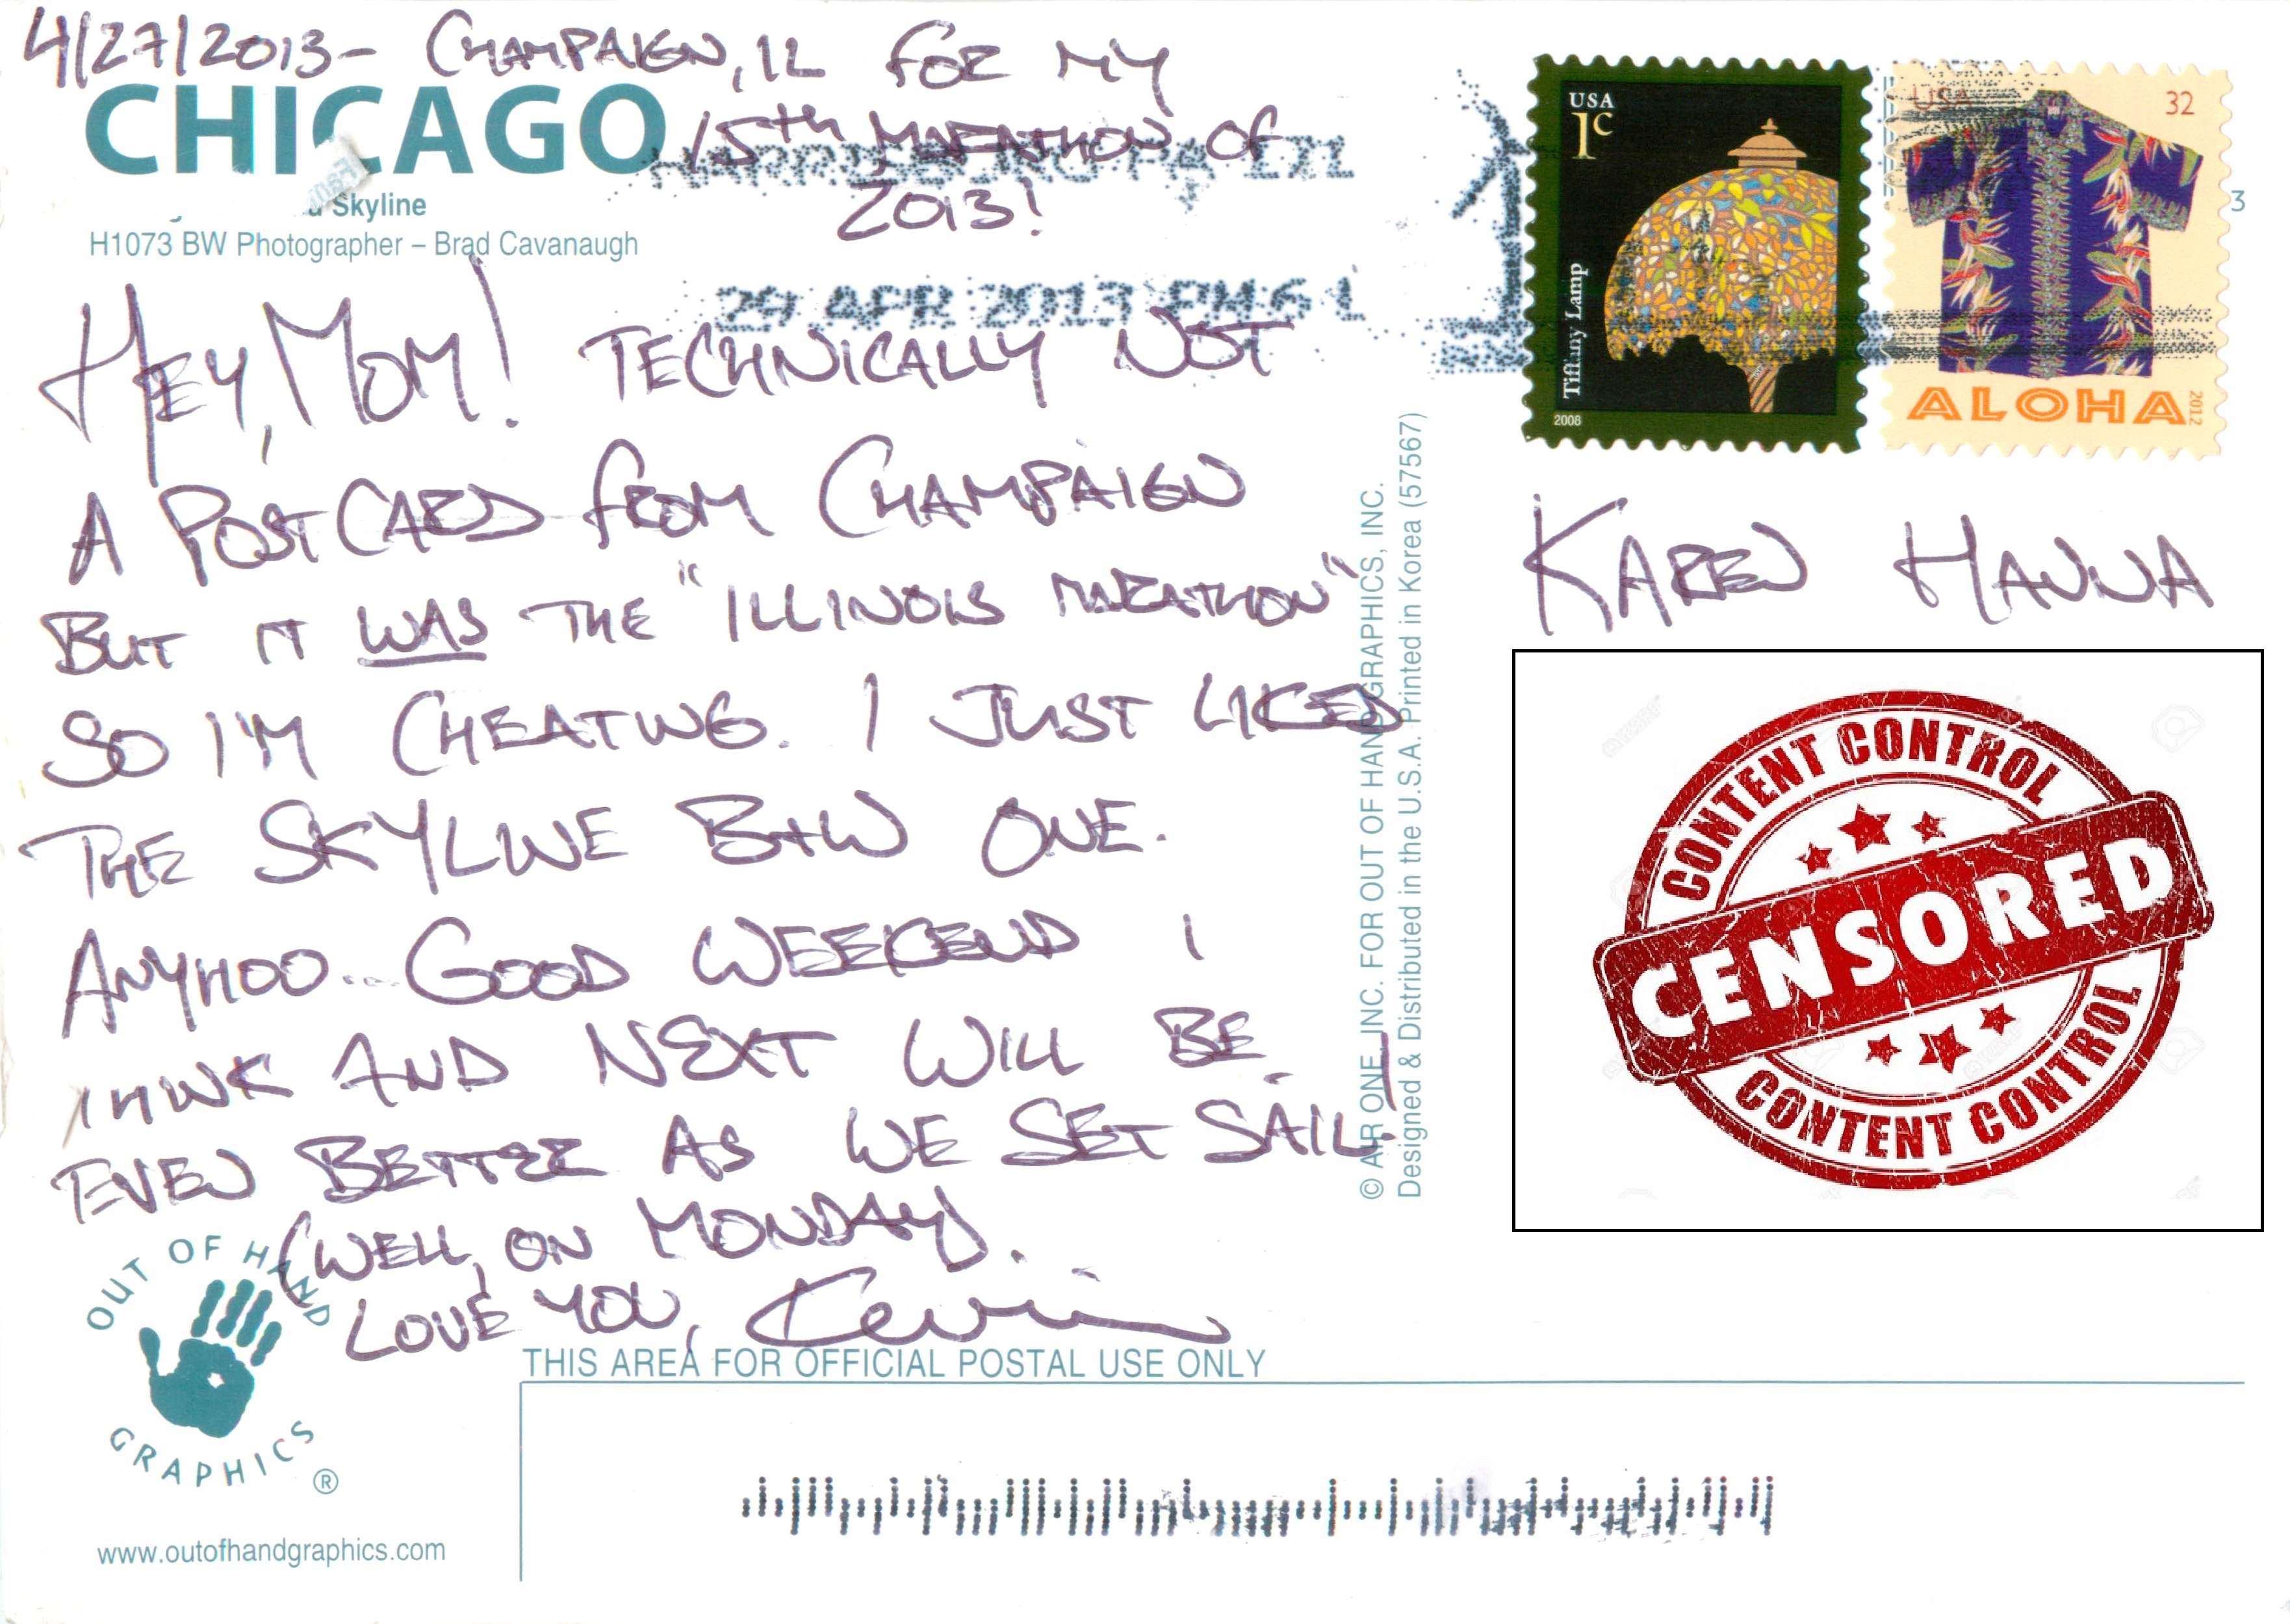 4/27/2013 - CHAMPAIGN, IL FOR MY
15th MARATHON OF
2013!
CHICAGO
Skyline
H1073 BW Photographer – Brad Cavanaugh
HARRISBURG PA 171
29 APR 2013 PM 6 L
HEY, MOM! TECHNICALLY NOT
A POSTCARD FROM CHAMPAIGN
BUT IT WAS THE "ILLINOIS MARATHON"
SO I'M CHEATING. I JUST LIKED
THE SKYLINE B+W ONE.
ANYHOO... GOOD WEEKEND I
THINK AND NEXT WILL BE
EVEN BETTER AS WE SET SAIL!
(WELL, ON MONDAY).
LOVE YOU, Kevin
OUT OF HAND
GRAPHICS
®
www.outofhandgraphics.com
THIS AREA FOR OFFICIAL POSTAL USE ONLY
© AIR ONE, INC. FOR OUT OF HAND GRAPHICS, INC.
Designed & Distributed in the U.S.A. Printed in Korea (57567)
USA
1c
Tiffany Lamp
2008
USA
32
ALOHA
2012
3
KAREN HANNA
CONTENT CONTROL
CENSORED
CONTENT CONTROL